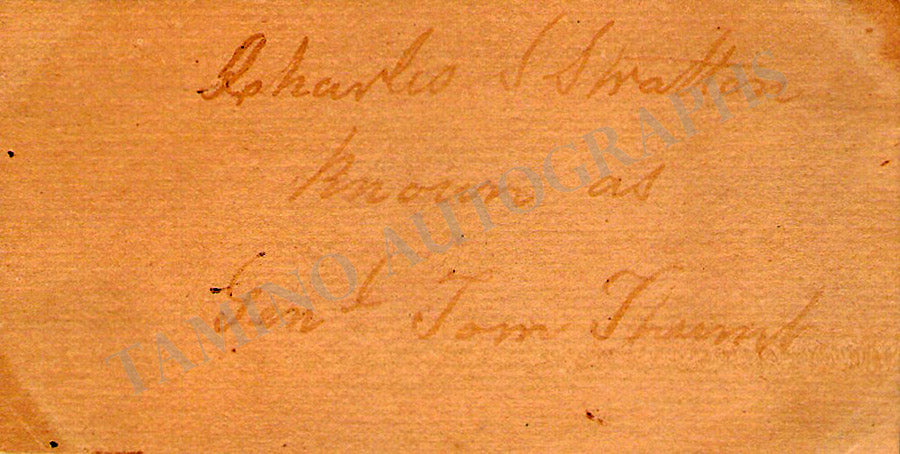 Charles S Stratton
Known as
Genl Tom Thumb
TAMINO AUTOGRAPHS